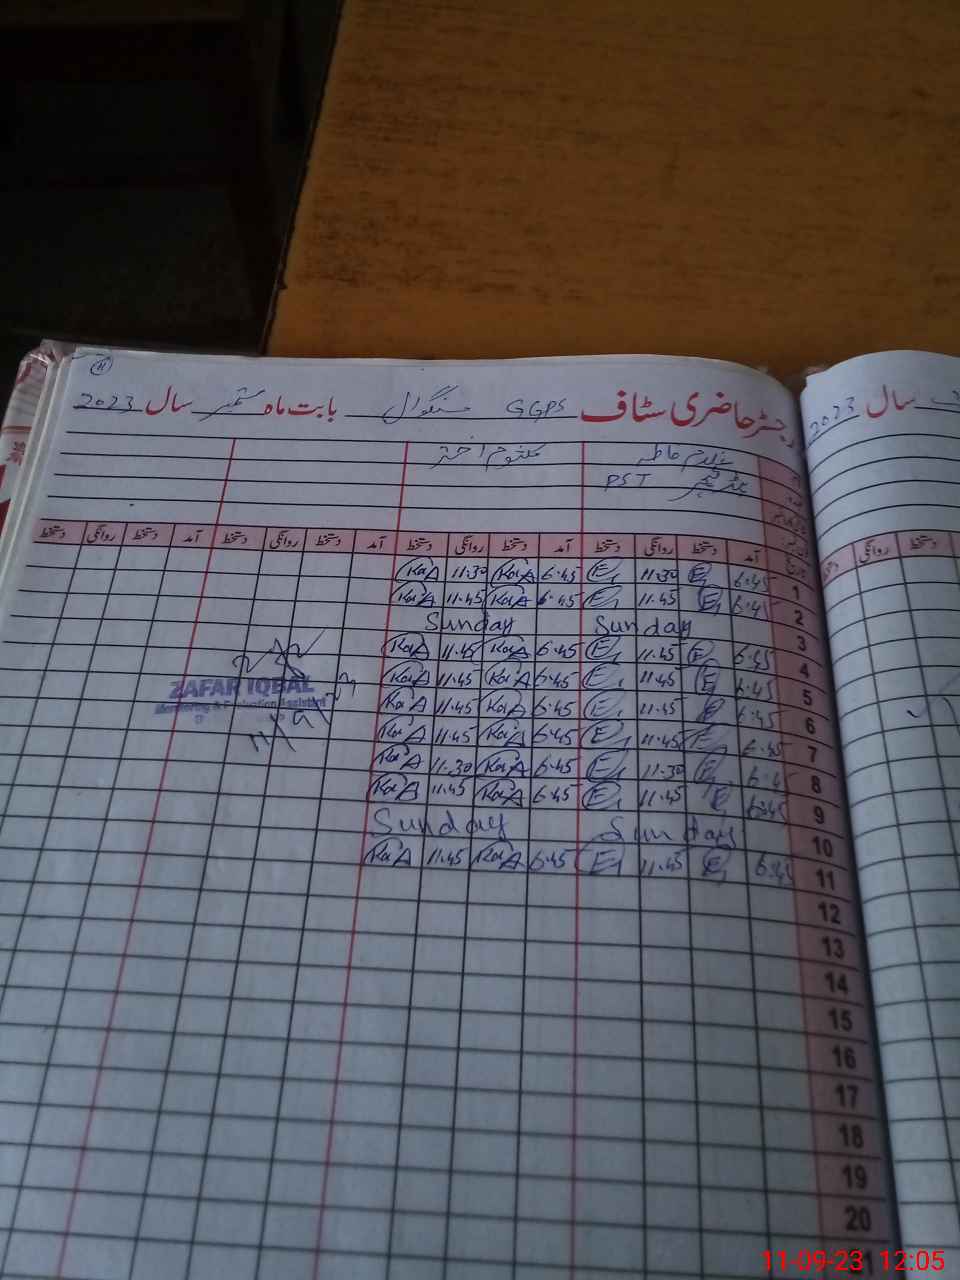 11
رجسٹر حاضری سٹاف GGPS سنگوال بابت ماہ ستمبر سال 2023
سال 2023
ارم فاطمہ کلثوم اختر
PST
آمد دستخط روانگی دستخط آمد دستخط روانگی دستخط آمد دستخط روانگی دستخط آمد دستخط روانگی دستخط
1 6:45 11:30 6:45 KaiA 11:30 KaiA
2 6:45 11:45 6:45 KaiA 11:45 KaiA
3 Sunday Sunday
4 6:45 11:45 6:45 KaiA 11:45 KaiA
5 6:45 11:45 6:45 KaiA 11:45 KaiA
6 6:45 11:45 6:45 KaiA 11:45 KaiA
7 6:45 11:45 6:45 KaiA 11:45 KaiA
8 6:45 11:30 6:45 KaiA 11:30 KaiA
9 6:45 11:45 6:45 KaiA 11:45 KaiA
10 Sunday Sunday
11 6:45 11:45 6:45 KaiA 11:45 KaiA
12
13
14
15
16
17
18
19
20
ZAFAR IQBAL
Monitoring & Evaluation Assistant
11/9/23
دستخط روانگی دستخط
11-09-23 12:05